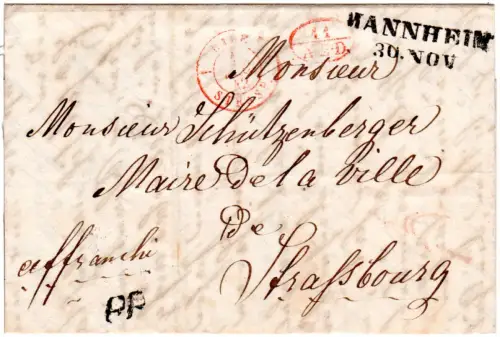 MANNHEIM
30. NOV
Monsieur
Monsieur Schützenberger
Maire de la Ville
de
Strassbourg
affranchi
PP